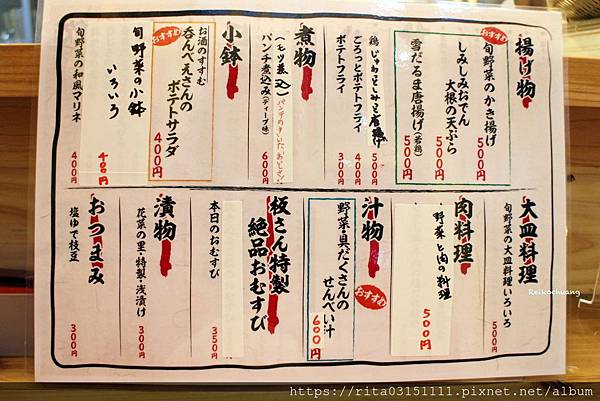 揚げ物
おすすめ
旬野菜のかき揚げ
500円
しみしみおでん
大根の天ぷら
500円
雪だるま唐揚げ(若鶏)
500円
鶏じゅおとしみそ唐揚げ
500円
ごろっとポテトフライ
400円
ポテトフライ
300円
煮物
(モツ煮込)
パンチ煮込み(ディープ味)
600円
小鉢
お酒のすすむ
おすすめ
呑んべえさんの
ポテトサラダ
400円
旬野菜の小鉢
いろいろ
400円
旬野菜の和風マリネ
400円
大皿料理
旬野菜の大皿料理いろいろ
500円
肉料理
野菜と肉の料理
500円
汁物
おすすめ
野菜・具だくさんの
せんべい汁
600円
板さん特製
絶品おむすび
本日のおむすび
350円
漬物
花菜の里・特製・浅漬け
300円
おつまみ
塩ゆで枝豆
300円
Reikochuang
https://rita03151111.pixnet.net/album